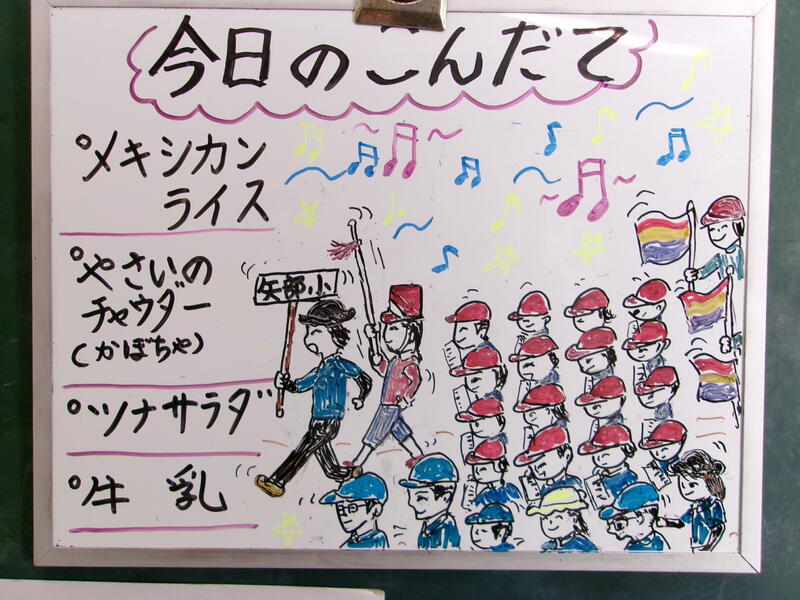 今日のこんだて
°メキシカン
ライス
°やさいの
チャウダー
(かぼちゃ)
°ツナサラダ
°牛乳
矢部小